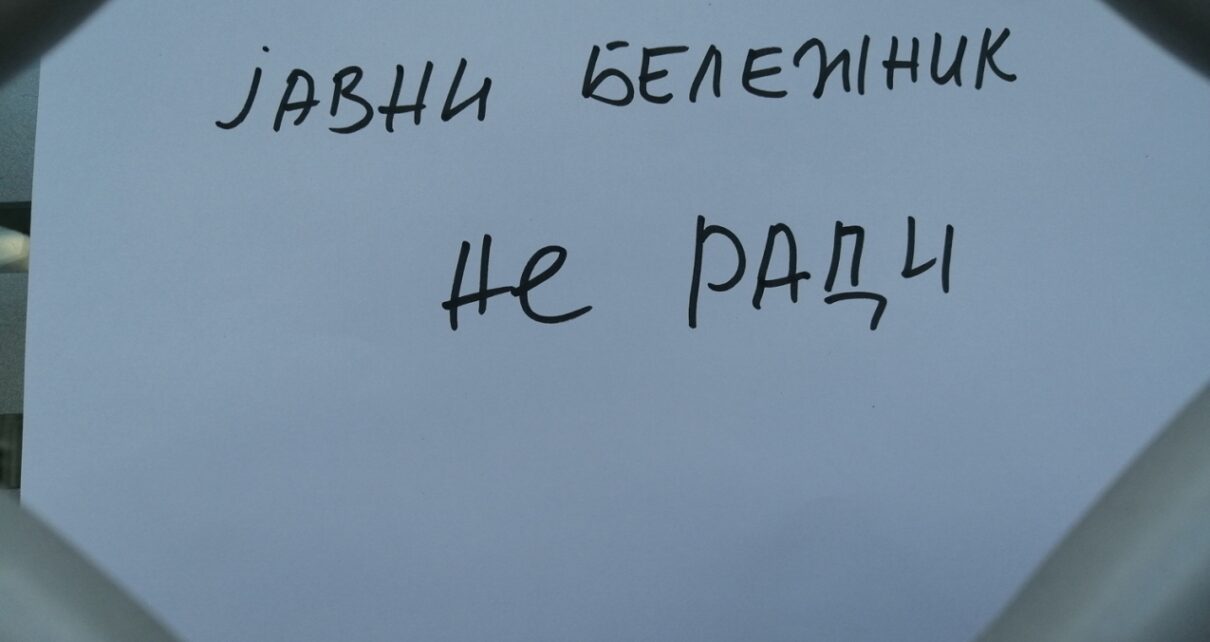 ЈАВНИ БЕЛЕЖНИК
не РАДИ